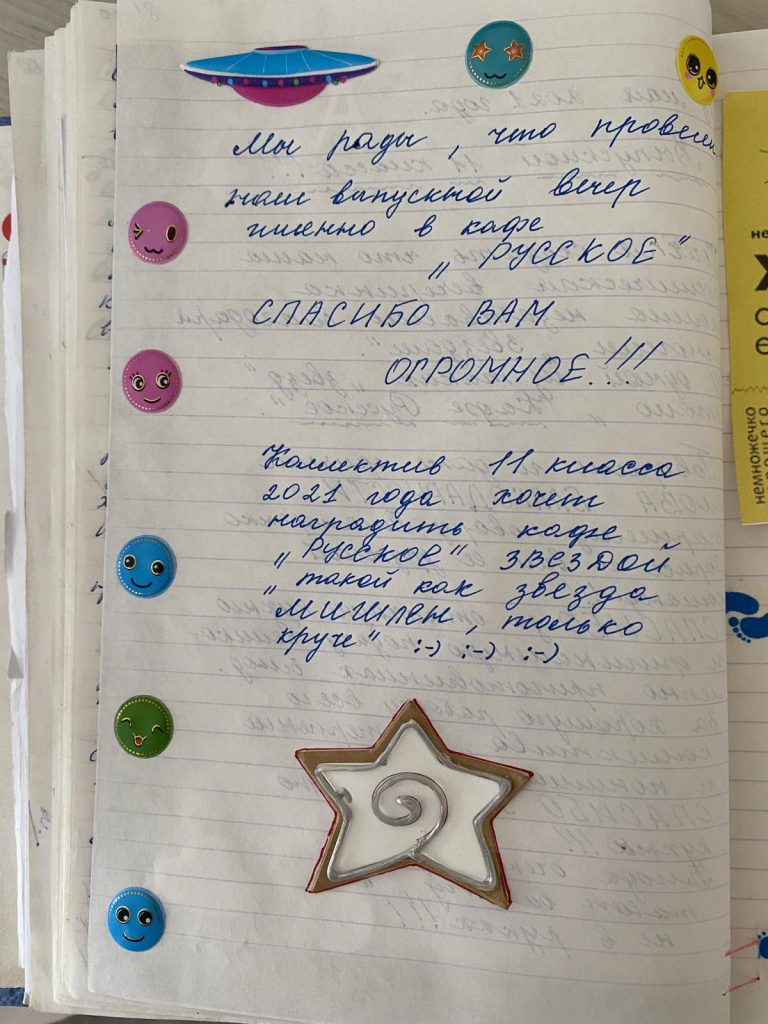 Мы рады, что провели
наш выпускной вечер
именно в кафе
„РУССКОЕ"
СПАСИБО ВАМ
ОГРОМНОЕ!!!
Коллектив 11 класса
2021 года хочет
наградить кафе
„РУССКОЕ" ЗВЕЗДОЙ
„такой как звезда
"МИШЛЕН, только
круче" :-) :-) :-)
не
Х
С
е
немножечко